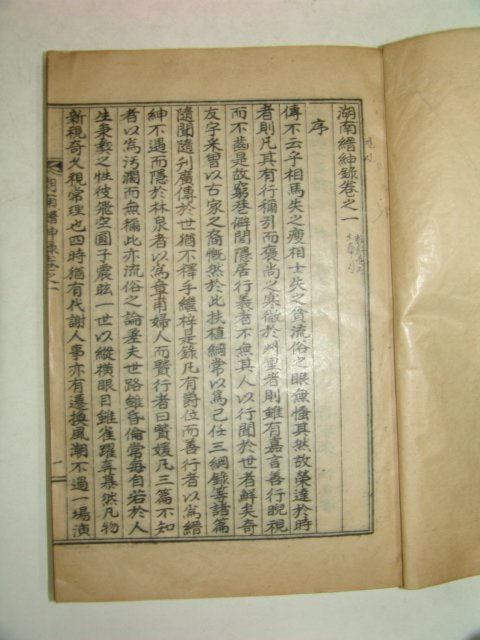 湖南縉紳錄卷之一
序
傳不云乎相馬失之瘦相士失之貧流俗之眼無愠其然故榮達於時
者則凡其有行稱引而褒尚之寒微於州里者則雖有嘉言善行睨視
而不齒是故窮巷僻閭隱居行義者不無其人以行聞於世者鮮矣奇
友字采曾以古家之裔慨然於此扶植綱常以爲己任三綱錄等諸篇
隨聞隨刊廣傳於世猶不釋手繼梓是錄凡有爵位而善行者以爲縉
紳不遇而隱於林泉者以爲章甫婦人而賢行者曰贊媛凡三篇不知
者以爲汚瀾而無稱此亦流俗之論差夫世路雖昏倫常每自若於人
生秉彝之性彼飛空圓子震眩一世以縱橫眼目雖雀躍奔慕然凡物
新視奇久視常理也四時猶有代謝人事亦有遷換風潮不過一場演
湖南縉紳錄卷之一
一